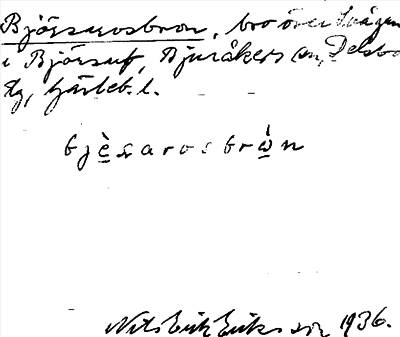 Björsarosbron, bro över Svågan
i Björsarf, Bjuråkers sn, Delsbo
tg, Gävleb. l.
bjèsarosbròn
Nils Erik Eriksson 1936.